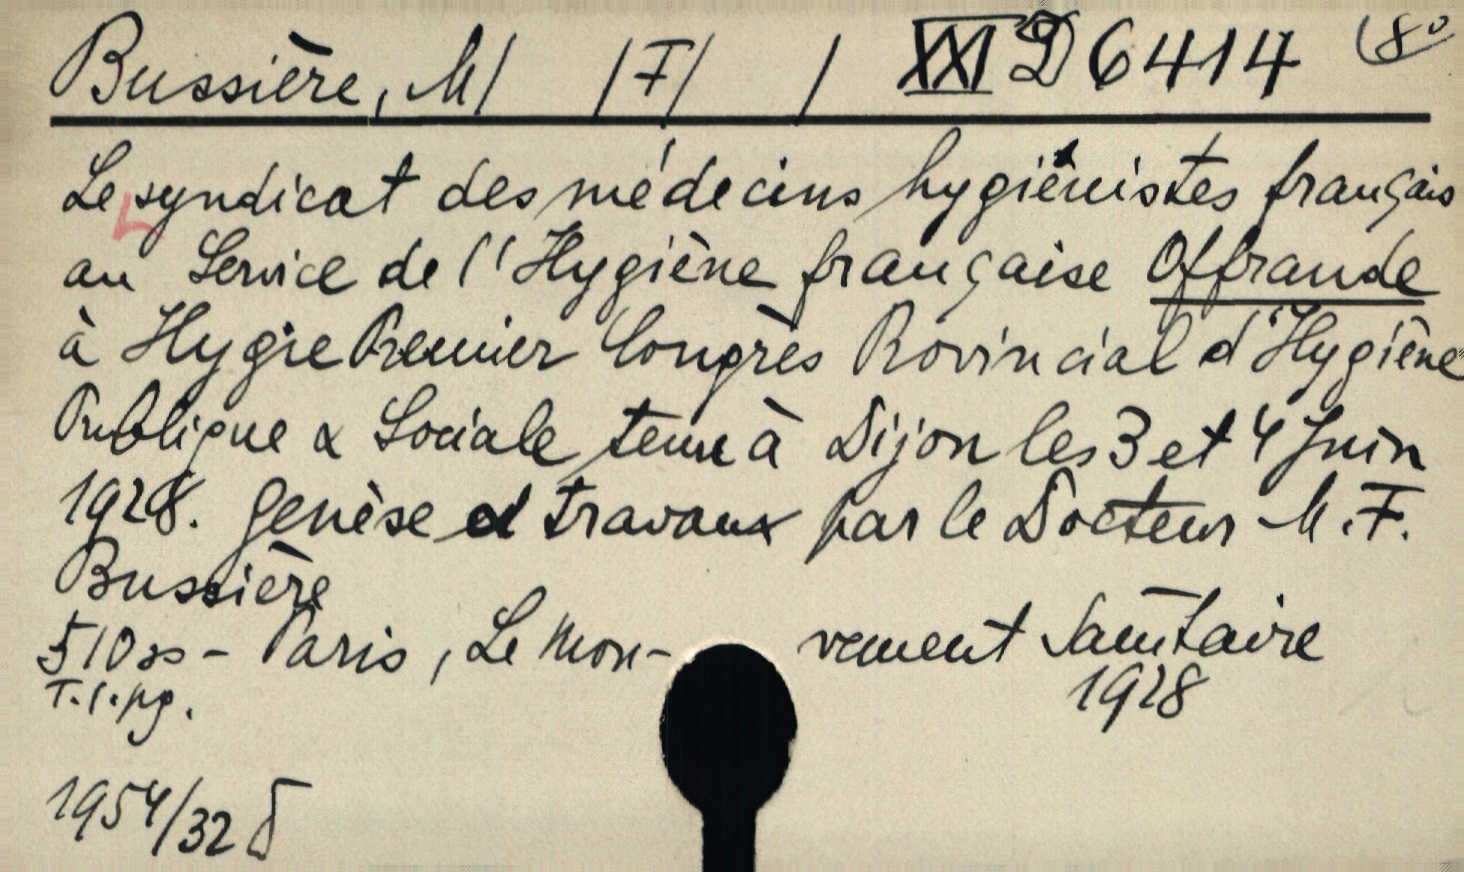 Bussière, M/ /F/ / XXI D 6414 (8°
Le syndicat des médecins hygiénistes français
au Service de l'Hygiène française Offrande
à Hygie Premier Congrès Provincial d'Hygiène
Publique & Sociale tenu à Dijon les 3 et 4 Juin
1928. genèse et travaux par le Docteur M. F.
Bussière
510 - Paris, Le Mou-vement Sanitaire
T.1.pg. 1928
1954/32